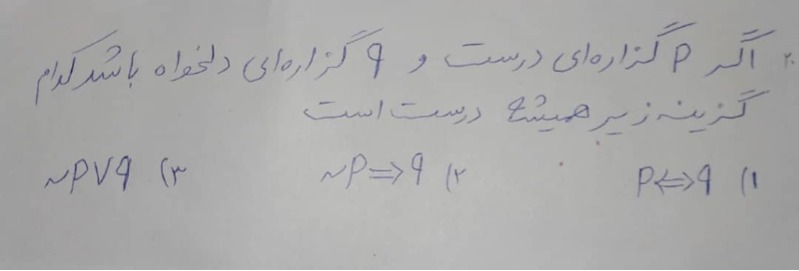 ۲. اگر P گزاره‌ای درست و q گزاره‌ای دلخواه باشد کدام
گزینه زیر همیشه درست است
۱) P⇔q ۲) ~P⇒q ۳) ~P∨q